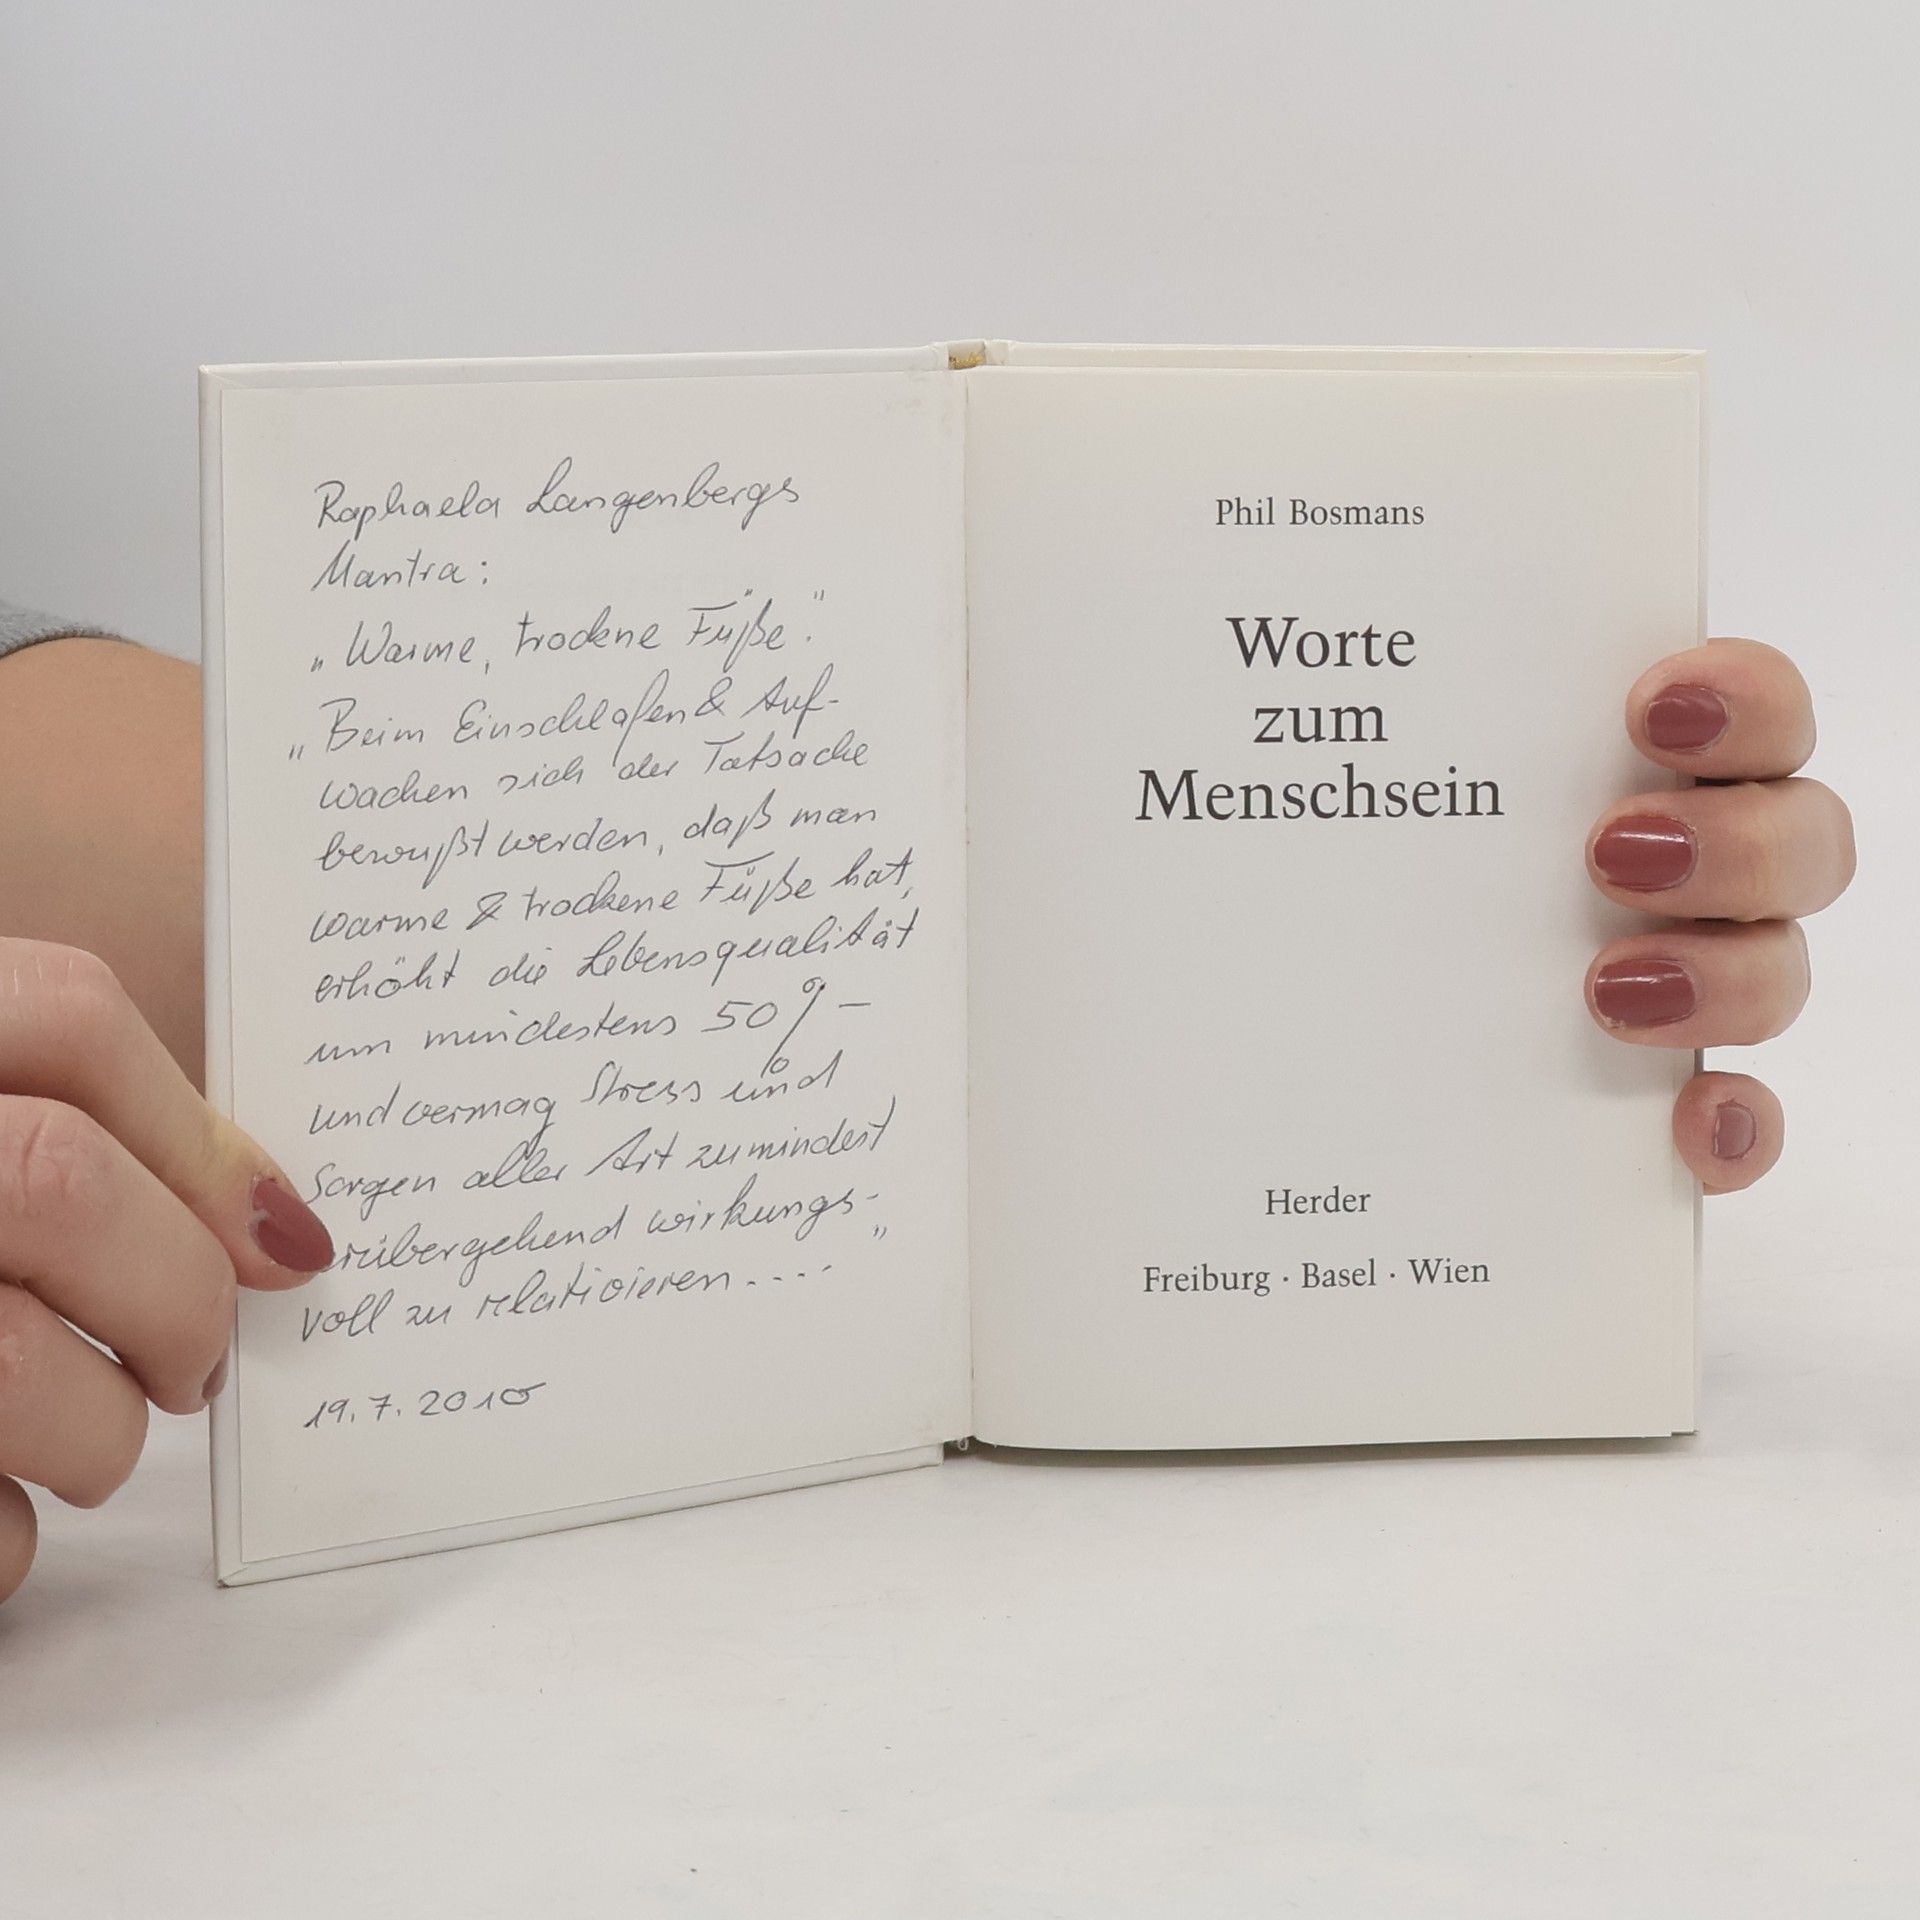 Raphaela Langenbergs
Mantra:
„Warme, trockene Füße."
„Beim Einschlafen & Auf-
wachen sich der Tatsache
bewußt werden, daß man
warme & trockene Füße hat,
erhöht die Lebensqualität
um mindestens 50% –
und vermag Stress und
Sorgen aller Art zumindest
rübergehend wirkungs-
voll zu relativieren...."
19.7.2010
Phil Bosmans
Worte
zum
Menschsein
Herder
Freiburg · Basel · Wien